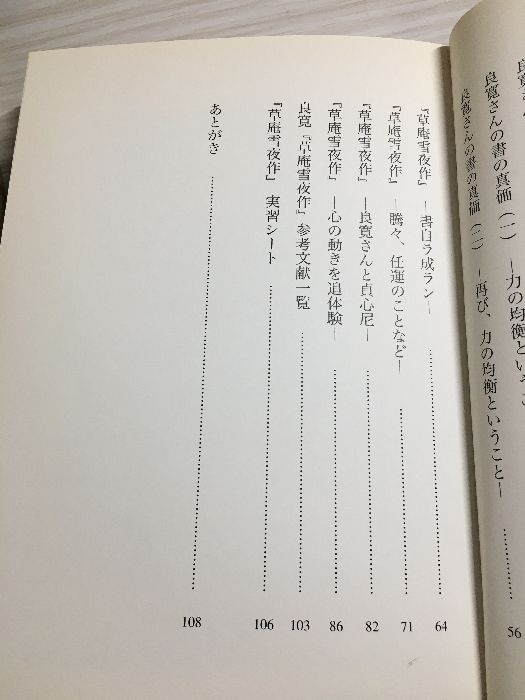 良寛さんの書の真価（一）―力の均衡という
良寛さんの書の真価（二）―再び、力の均衡ということ― 56
『草庵雪夜作』―書自ラ成ラン― 64
『草庵雪夜作』―騰々、任運のことなど― 71
『草庵雪夜作』―良寛さんと貞心尼― 82
『草庵雪夜作』―心の動きを追体験― 86
良寛『草庵雪夜作』参考文献一覧 103
『草庵雪夜作』実習シート 106
あとがき 108